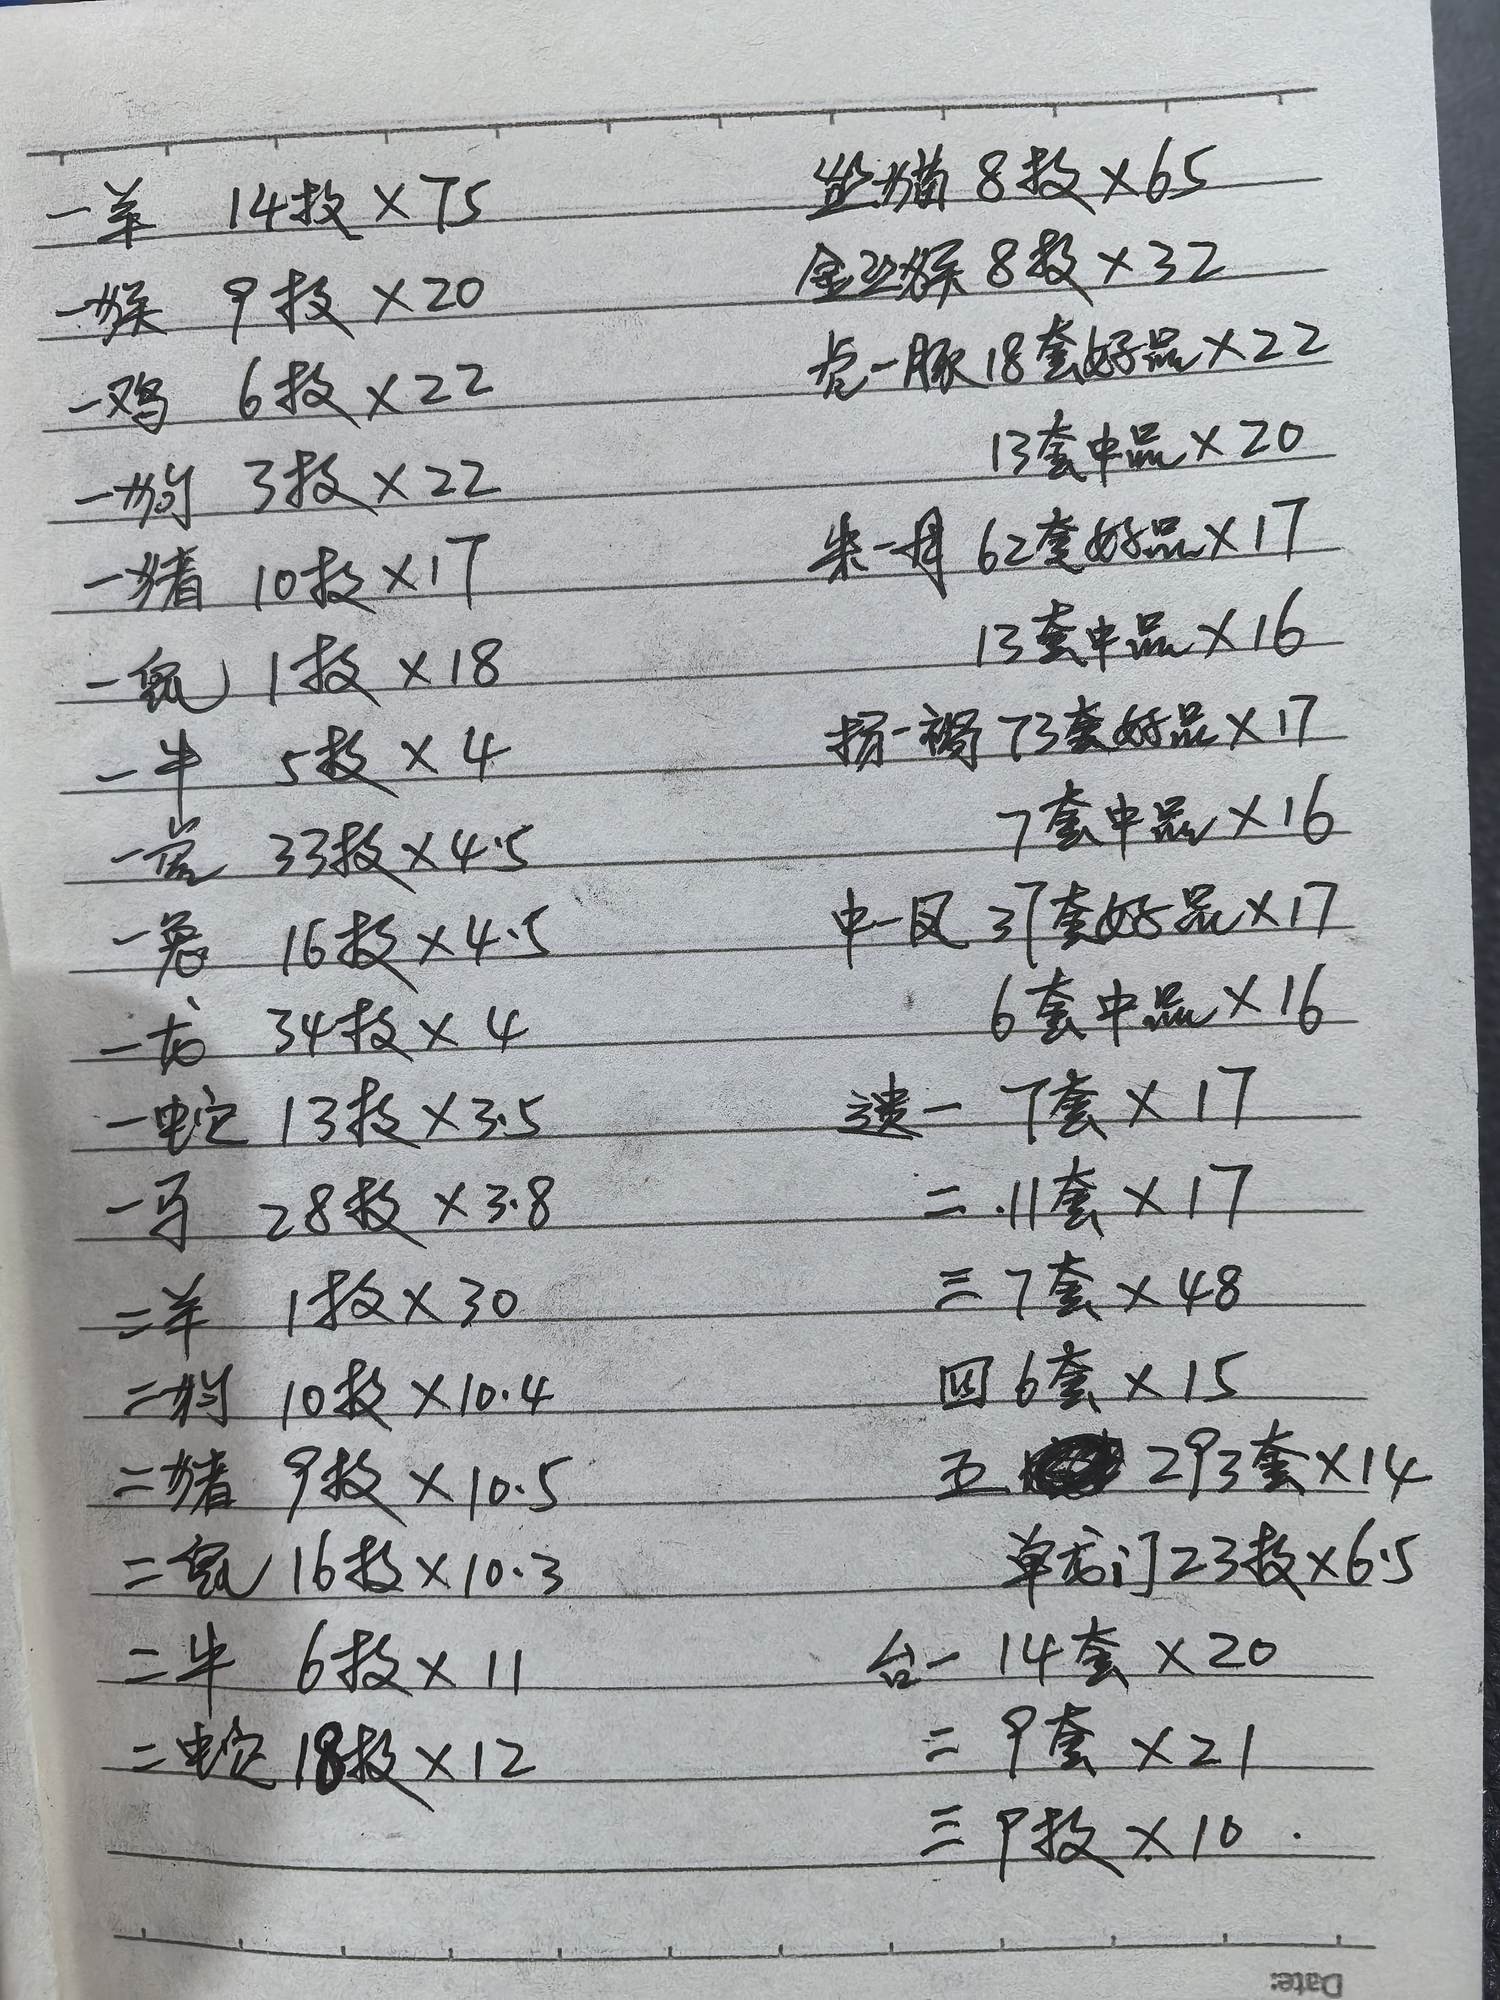 一羊 14枚×75
一猴 9枚×20
一鸡 6枚×22
一狗 3枚×22
一猪 10枚×17
一鼠 1枚×18
一牛 5枚×4
一虎 33枚×4.5
一兔 16枚×4.5
一龙 34枚×4
一蛇 13枚×3.5
一马 28枚×3.8
二羊 1枚×30
二狗 10枚×10.4
二猪 9枚×10.5
二鼠 16枚×10.3
二牛 6枚×11
二蛇 18枚×12
熊猫 8枚×65
金丝猴 8枚×32
虎一豚 18套好品×22
13套中品×20
朱一丹 62套好品×17
13套中品×16
扬一褐 73套好品×17
7套中品×16
中一凤 37套好品×17
6套中品×16
遗一 7套×17
二 11套×17
三 7套×48
四 6套×15
五 293套×14
单龙门23枚×6.5
台一 14套×20
二 9套×21
三 9枚×10
Date: